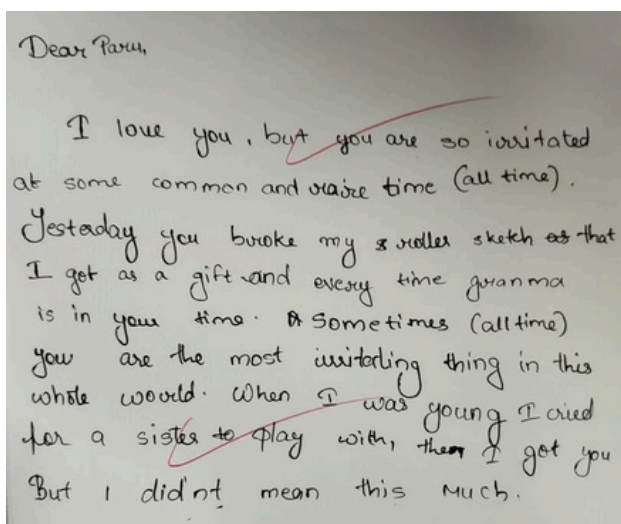 Dear Paru,
I love you, but you are so irritated
at some common and raire time (all time).
Yesterday you broke my roller sketch that
I got as a gift and every time granma
is in your time. Sometimes (all time)
you are the most irritating thing in this
whole world. When I was young I cried
for a sister to play with, then I got you
But I didn't mean this much.